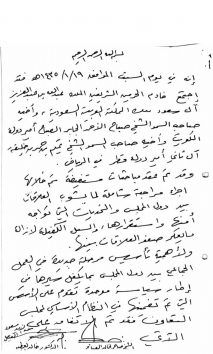 بسم الله الرحمن الرحيم
إنه في يوم السبت الموافق ١٤٣٥/١/١٩هـ فقد
اجتمع خادم الحرمين الشريفين الملك عبدالله بن عبدالعزيز
آل سعود ملك المملكة العربية السعودية وأخيه
صاحب السمو الشيخ صباح الأحمد الجابر الصباح أمير دولة
الكويت وأخيه صاحب السمو الشيخ تميم بن حمد بن خليفة
آل ثاني أمير دولة قطر في الرياض
وقد تم عقد مباحثات مستفيضة تم خلالها
إجراء مراجعة شاملة لما يشوب العلاقات
بين دول المجلس والتحديات التي تواجه
أمنها واستقرارها والسبل الكفيلة لإزالة
ما يعكر صفو العلاقات بينها
ولأهمية تأسيس مرحلة جديدة في العمل
الجماعي بين دول المجلس بما يكفل سيرها في
إطار سياسة موحدة تقوم على الأسس
التي تم تضمينها في النظام الأساسي لمجلس
التعاون فقد تم الاتفاق على